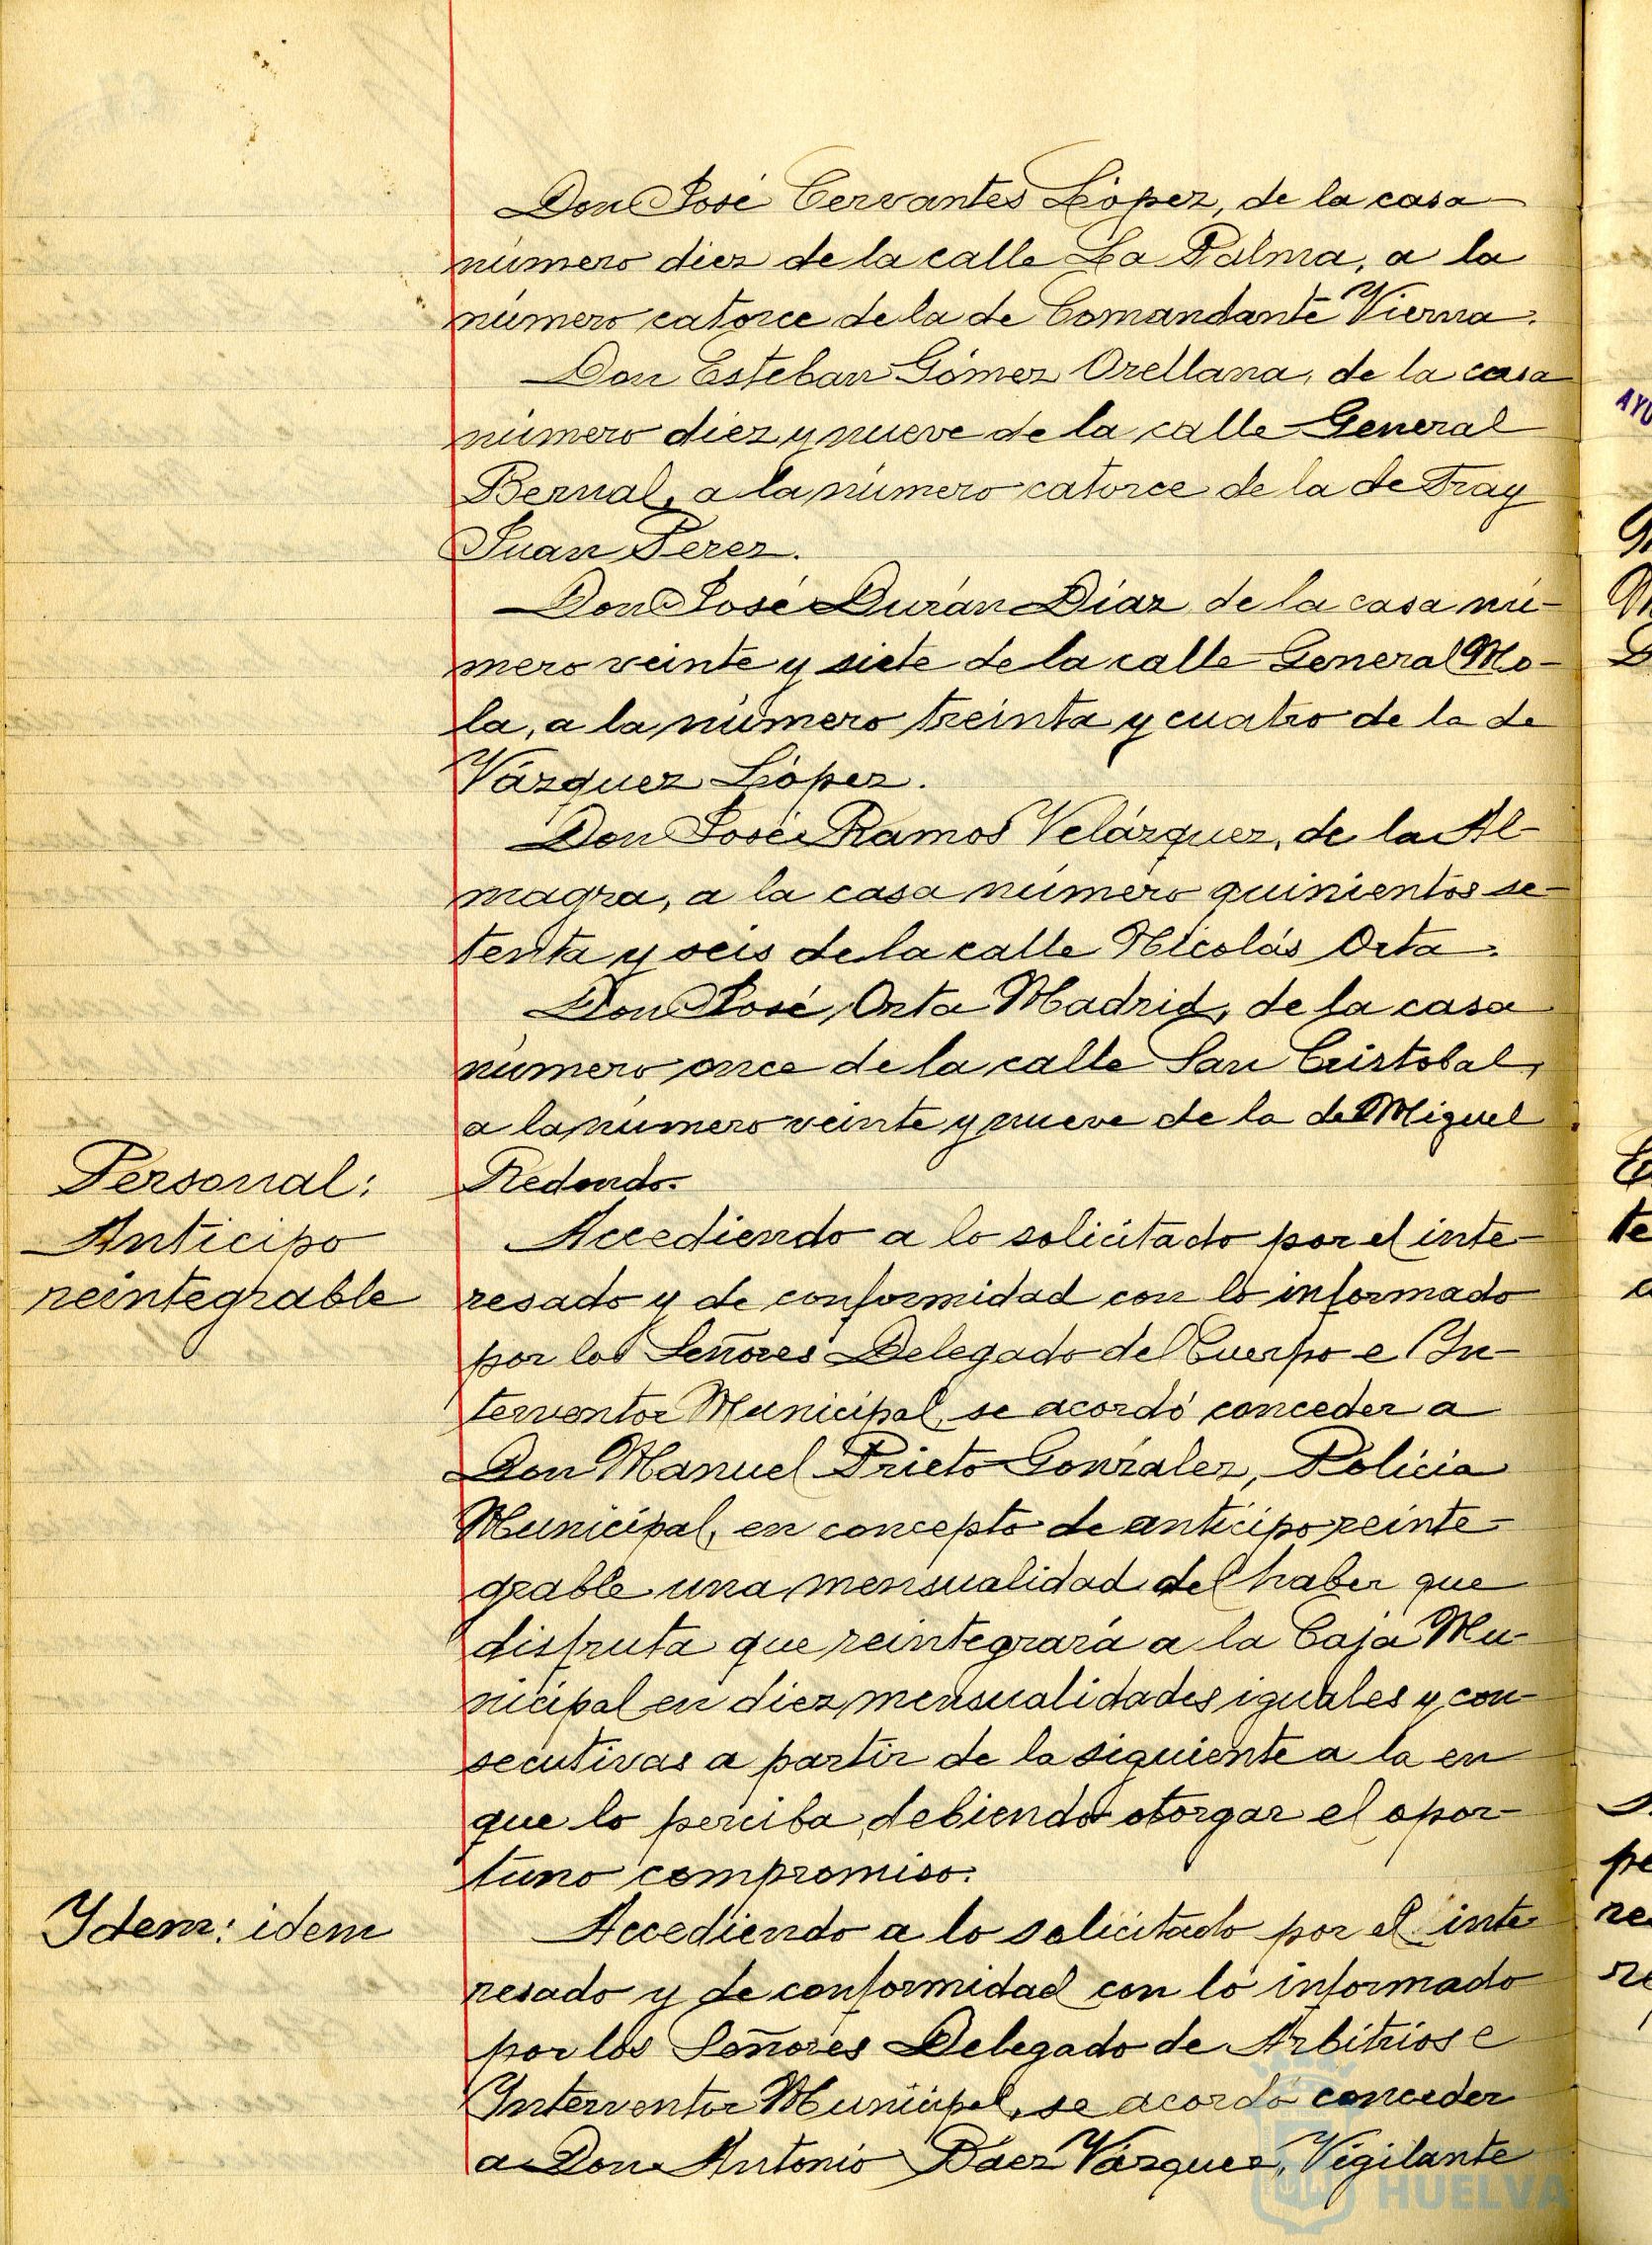 Don José Cervantes López, de la casa
número diez de la calle La Palma, a la
número catorce de la de Comandante Vierna.
Don Esteban Gómez Orellana, de la casa
número diez y nueve de la calle General
Bernal, a la número catorce de la de Fray
Juan Perez.
Don José Durán Díaz de la casa nú-
mero veinte y siete de la calle General Mo-
la, a la número treinta y cuatro de la de
Vázquez López.
Don José Ramos Velázquez, de la Al-
magra, a la casa número quinientos se-
tenta y seis de la calle Nicolás Orta.
Don José Orta Madrid, de la casa
número once de la calle San Cristobal,
a la número veinte y nueve de la de Miguel
Redondo.
Personal:
Anticipo
reintegrable
Accediendo a lo solicitado por el inte-
resado y de conformidad con lo informado
por los Señores Delegado del Cuerpo e In-
terventor Municipal, se acordó conceder a
Don Manuel Prieto González, Policía
Municipal, en concepto de anticipo reinte-
grable una mensualidad del haber que
disfruta que reintegrará a la Caja Mu-
nicipal en diez mensualidades iguales y con-
secutivas a partir de la siguiente a la en
que lo perciba, debiendo otorgar el opor-
tuno compromiso.
Idem: idem
Accediendo a lo solicitado por el inte-
resado y de conformidad con lo informado
por los Señores Delegado de Arbitrios e
Interventor Municipal, se acordó conceder
a Don Antonio Báez Vázquez, Vigilante
HUELVA